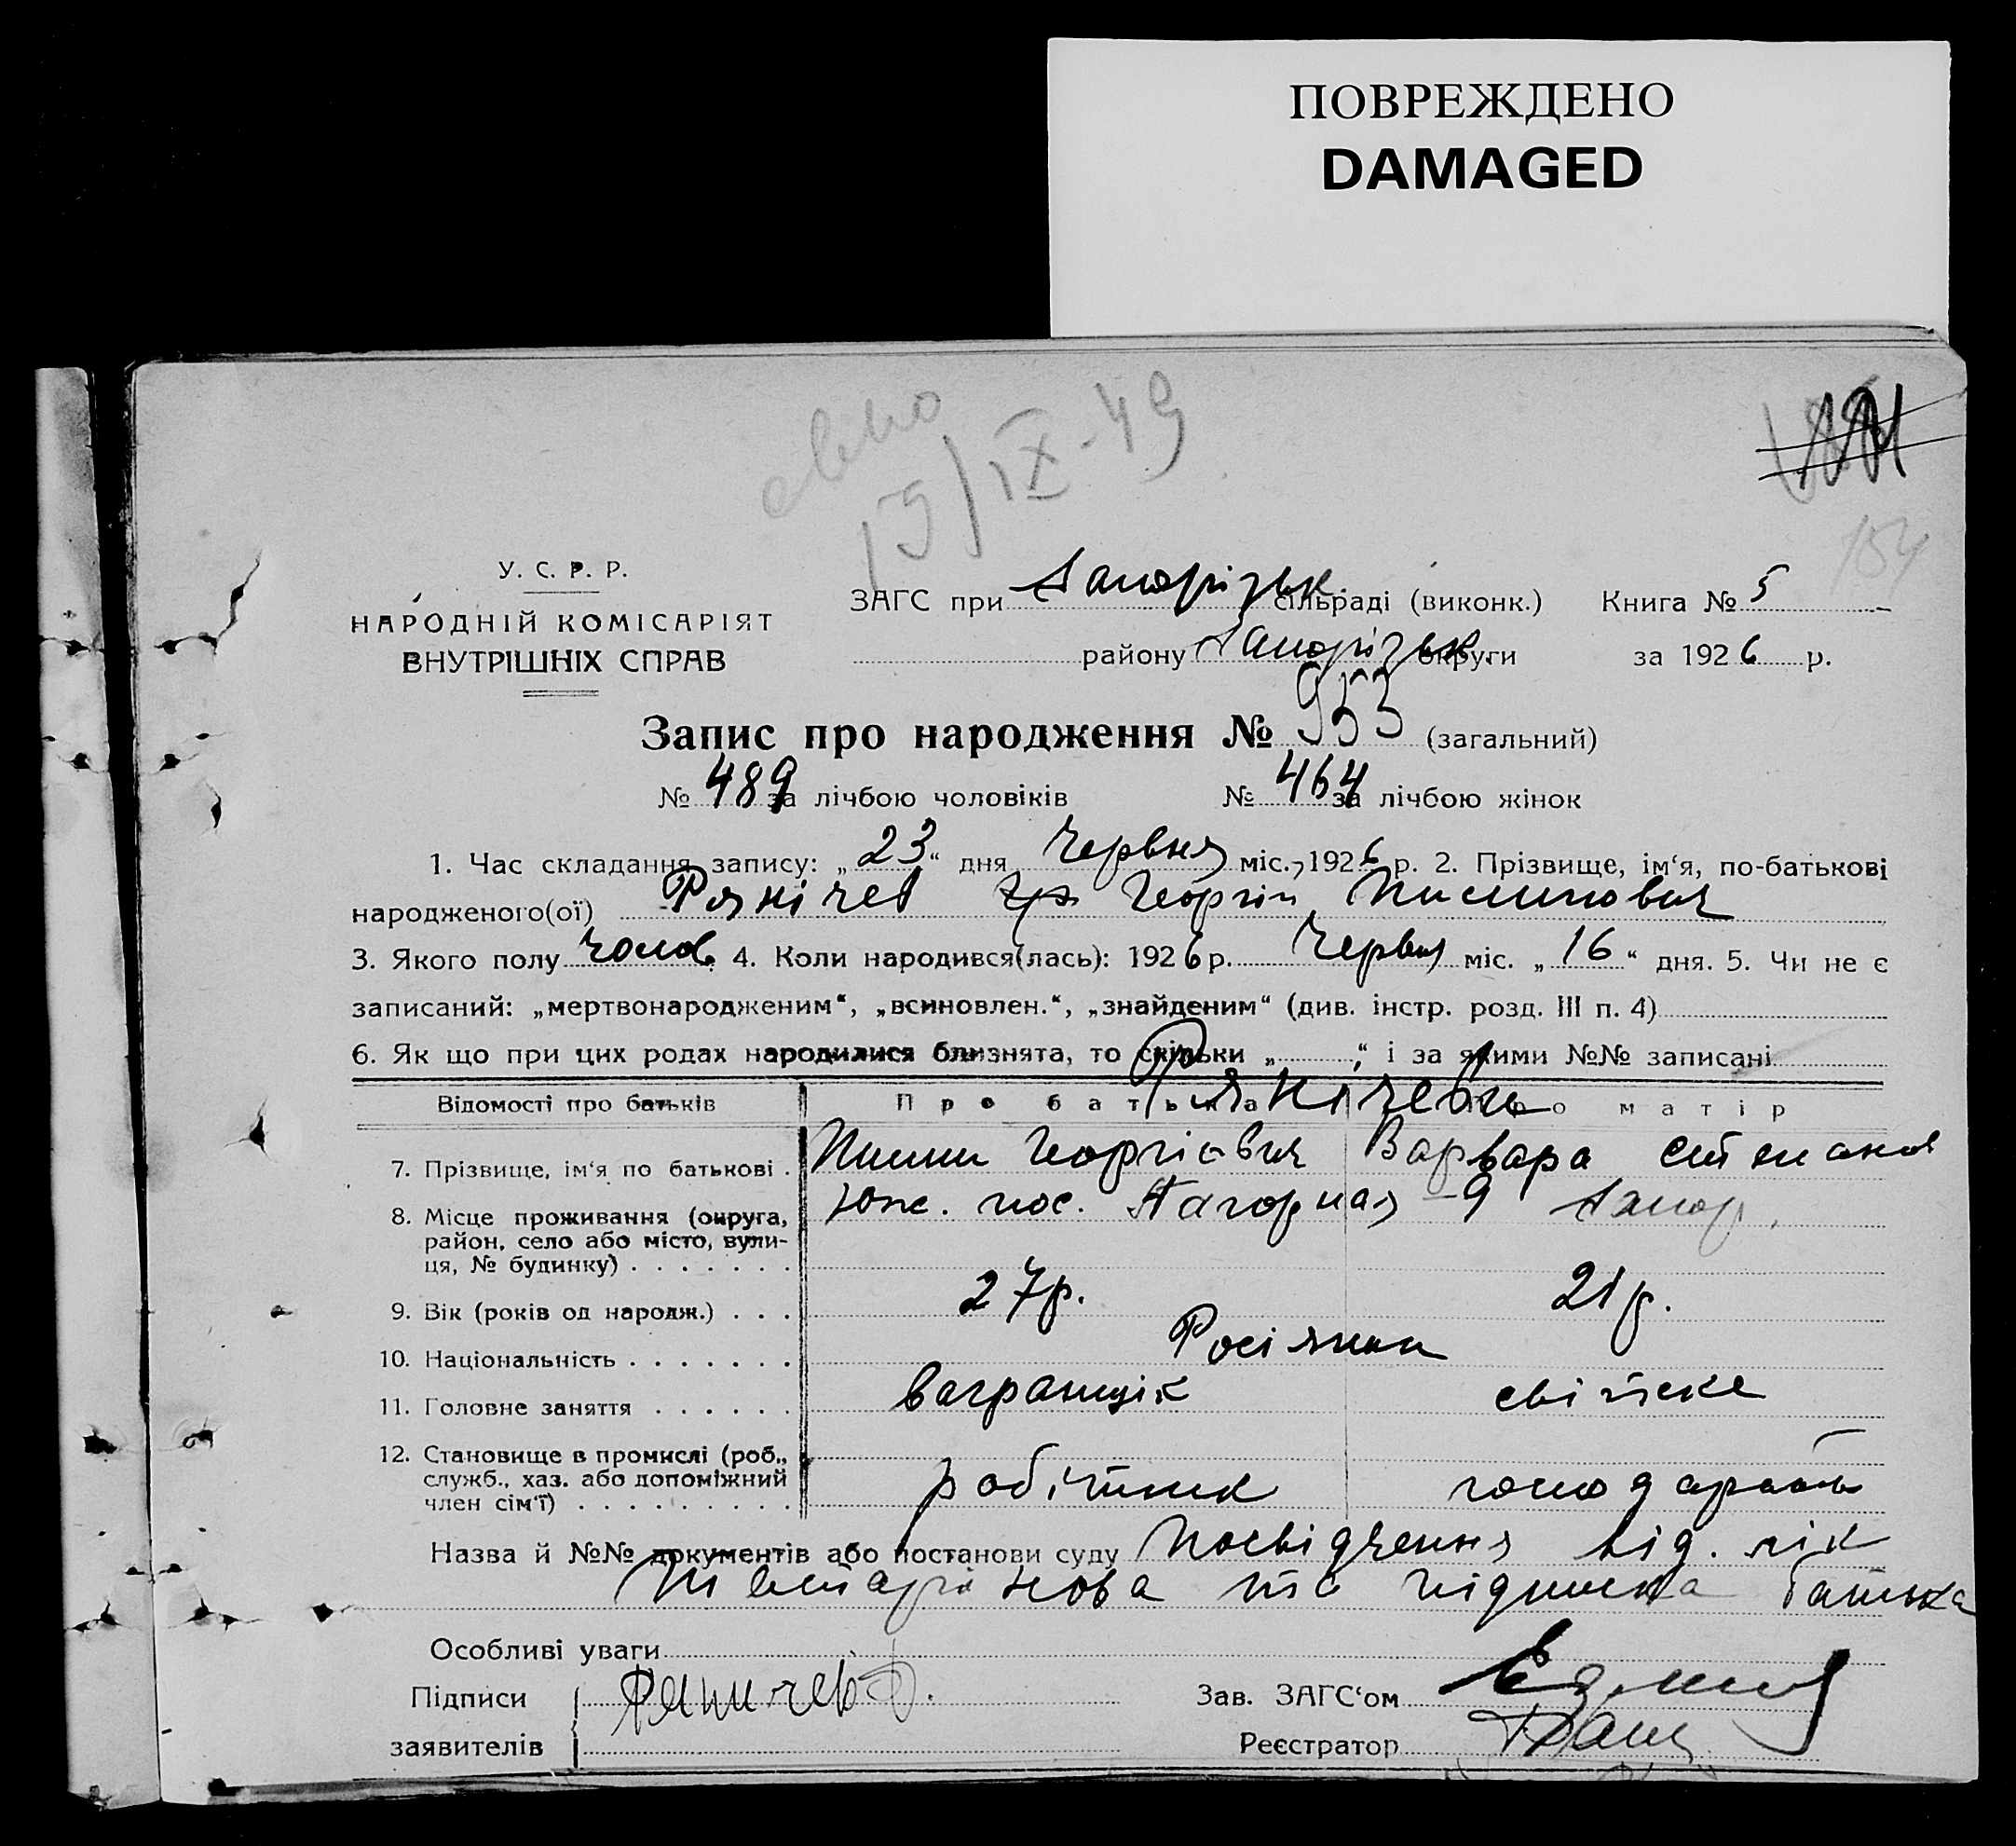 ПОВРЕЖДЕНО
DAMAGED
15/IX-49
154
У. С. Р. Р.
НАРОДНІЙ КОМІСАРІЯТ
ВНУТРІШНІХ СПРАВ
ЗАГС при Запорізьк. сільраді (виконк.) Книга № 5
району Запорізьк. округи за 1926 р.
Запис про народження № 953 (загальний)
№ 489 за лічбою чоловіків № 464 за лічбою жінок
1. Час складання запису: „23“ дня Червня міс., 1926 р. 2. Прізвище, ім‘я, по-батькові
народженого(ої) Рянічев Георгій Пилипович
3. Якого полу чолов. 4. Коли народився(лась): 1926 р. Червня міс. „16“ дня. 5. Чи не є
записаний: „мертвонародженим“, „всиновлен.“, „знайденим“ (див. інстр. розд. III п. 4)
6. Як що при цих родах народилися близнята, то скільки „ “, і за якими №№ записані
Відомості про батьків Про батька Про матір
Рянічеви
7. Прізвище, ім‘я по батькові . Пилип Георгієвич Варвара Степанов
8. Місце проживання (округа, Юж. пос. Нагорная - 9 Запор.
район, село або місто, вули-
ця, № будинку) . . . . . . .
9. Вік (років од народж.) . . . 27р. 21р.
10. Національність . . . . . . . Росіяни
11. Головне заняття . . . . . . вагранщік свійське
12. Становище в промислі (роб.,
служб., хаз. або допоміжний
член сім‘ї) . . . . . . . . . робітник господарств
Назва й №№ документів або постанови суду Посвідчення від. лік
та підписка батька
Особливі уваги
Підписи Ряничев
заявителів
Зав. ЗАГС‘ом
Реєстратор